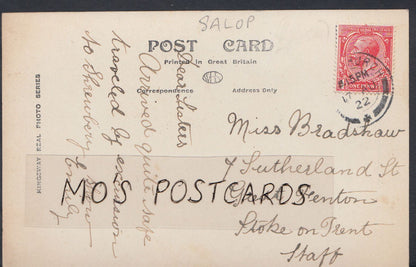 SALOP
POST CARD
Printed in Great Britain
Correspondence
Address Only
KINGSWAY REAL PHOTO SERIES
Dear Sisters
Arrived quite safe
traveled by excursion
to Shrewsbury
Emily
Miss Bradshaw
7 Sutherland St
Fenton
Stoke on Trent
Staff
PM
22
MOS POSTCARDS